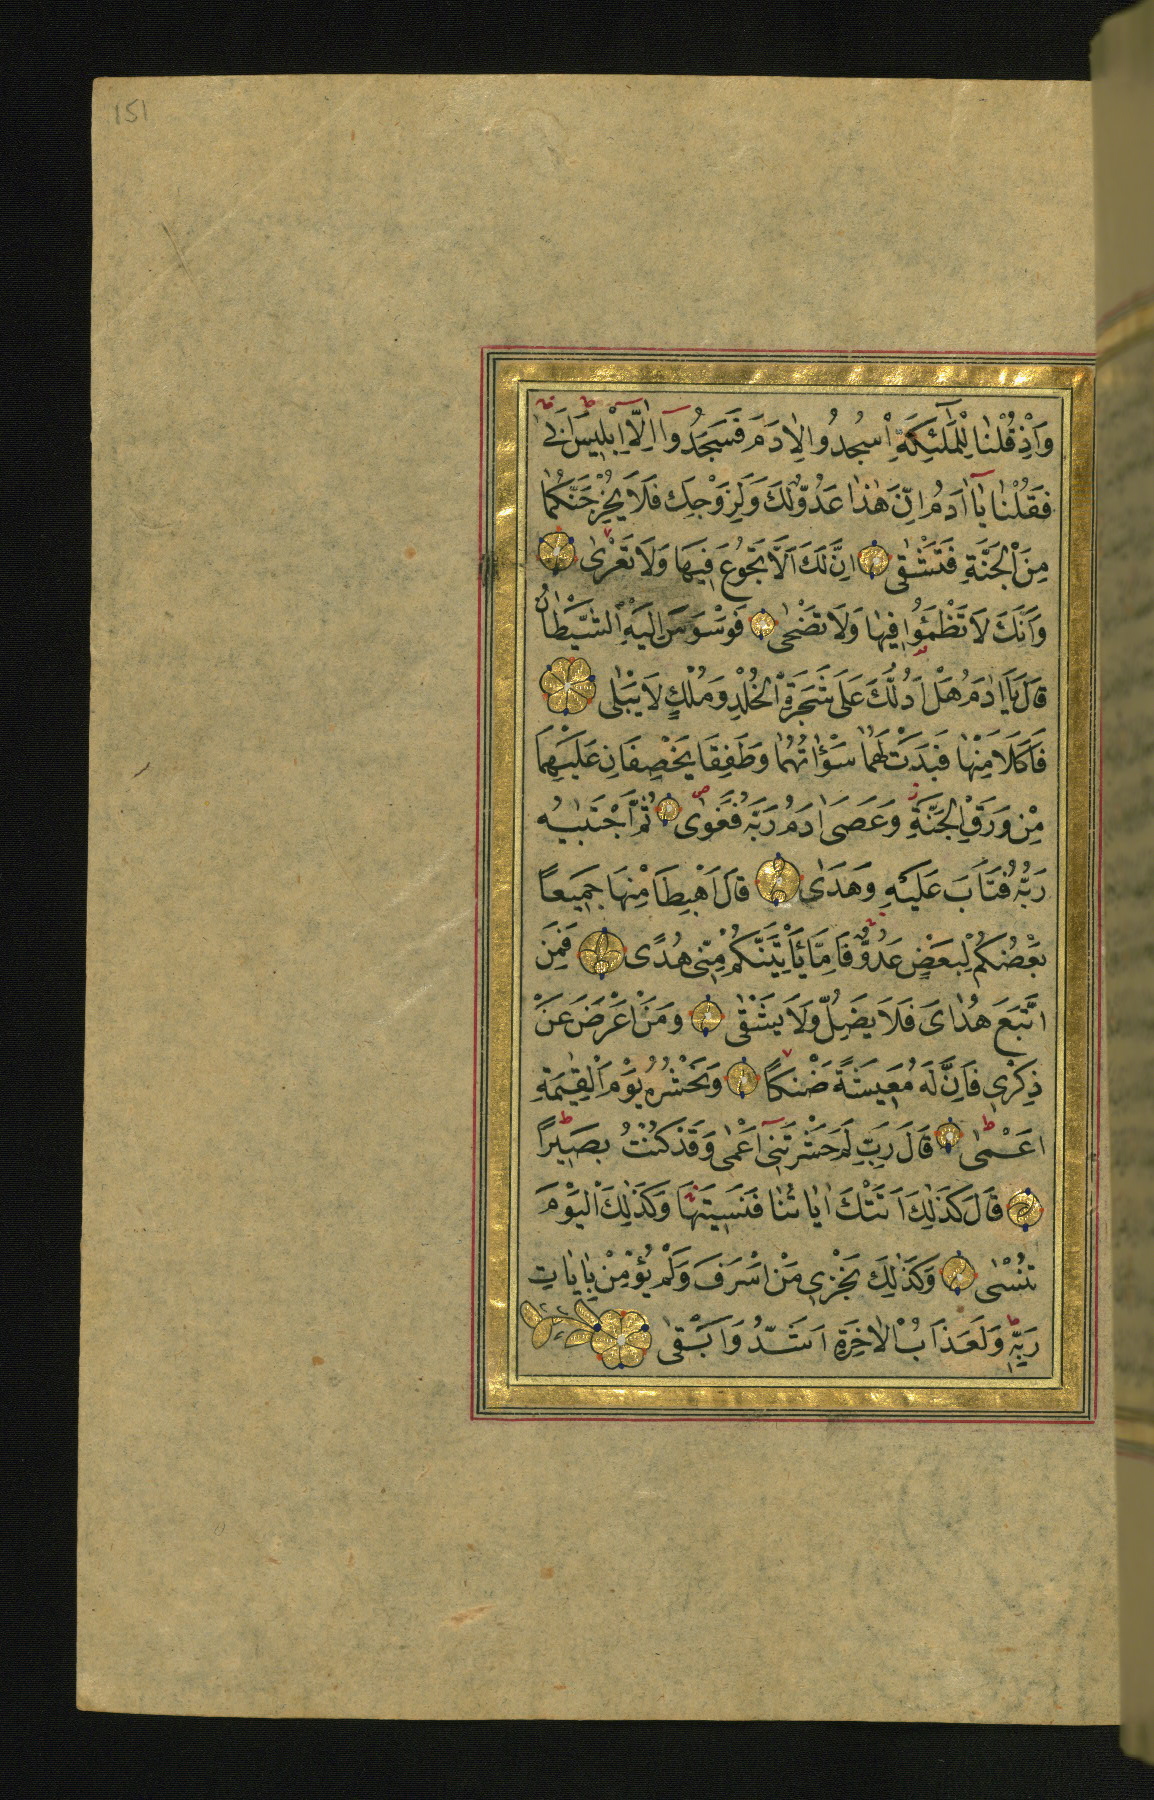 151
وَاِذْ قُلْنَا لِلْمَلٰٓئِكَةِ اسْجُدُوا لِاٰدَمَ فَسَجَدُٓوا اِلَّٓا اِبْلِيسَ اَبٰى
فَقُلْنَا يَٓا اٰدَمُ اِنَّ هٰذَا عَدُوٌّ لَكَ وَلِزَوْجِكَ فَلَا يُخْرِجَنَّكُمَا
مِنَ الْجَنَّةِ فَتَشْقٰى اِنَّ لَكَ اَلَّا تَجُوعَ فِيهَا وَلَا تَعْرٰى
وَاَنَّكَ لَا تَظْمَؤُا فِيهَا وَلَا تَضْحٰى فَوَسْوَسَ اِلَيْهِ الشَّيْطَانُ
قَالَ يَا اٰدَمُ هَلْ اَدُلُّكَ عَلٰى شَجَرَةِ الْخُلْدِ وَمُلْكٍ لَا يَبْلٰى
فَاَكَلَا مِنْهَا فَبَدَتْ لَهُمَا سَوْاٰتُهُمَا وَطَفِقَا يَخْصِفَانِ عَلَيْهِمَا
مِنْ وَرَقِ الْجَنَّةِ وَعَصٰى اٰدَمُ رَبَّهُ فَغَوٰى ثُمَّ اجْتَبٰيهُ
رَبُّهُ فَتَابَ عَلَيْهِ وَهَدٰى قَالَ اهْبِطَا مِنْهَا جَمِيعًا
بَعْضُكُمْ لِبَعْضٍ عَدُوٌّ فَاِمَّا يَأْتِيَنَّكُمْ مِنِّى هُدًى فَمَنِ
اتَّبَعَ هُدَاىَ فَلَا يَضِلُّ وَلَا يَشْقٰى وَمَنْ اَعْرَضَ عَنْ
ذِكْرِى فَاِنَّ لَهُ مَعِيشَةً ضَنْكًا وَنَحْشُرُهُ يَوْمَ الْقِيٰمَةِ
اَعْمٰى قَالَ رَبِّ لِمَ حَشَرْتَنِٓى اَعْمٰى وَقَدْ كُنْتُ بَصِيرًا
قَالَ كَذٰلِكَ اَتَتْكَ اٰيَاتُنَا فَنَسِيتَهَا وَكَذٰلِكَ الْيَوْمَ
تُنْسٰى وَكَذٰلِكَ نَجْزِى مَنْ اَسْرَفَ وَلَمْ يُؤْمِنْ بِاٰيَاتِ
رَبِّهِ وَلَعَذَابُ الْاٰخِرَةِ اَشَدُّ وَاَبْقٰى